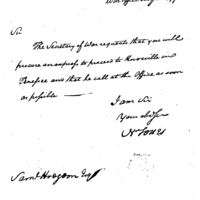 Sir
The Secretary of War requests that you will
procure an express to proceed to Knoxville in
Tenessee and that he call at the Office as soon
as possible
I am Sir
Your obt Ser
Saml Hodgdon Esqr